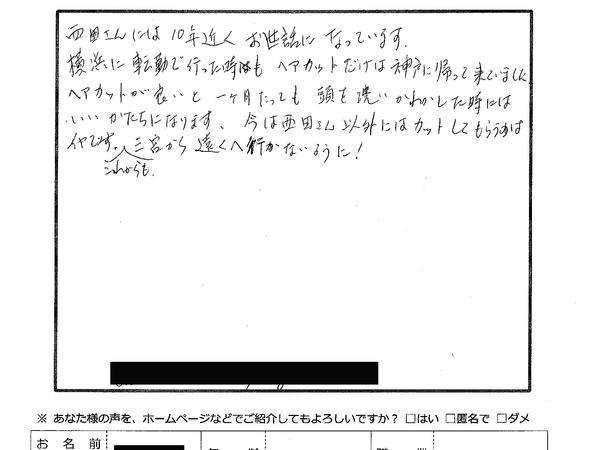 西田さんには10年近くお世話になっています。
横浜に転勤で行った時もヘアカットだけは神戸に帰って来ていました
ヘアカットが良いと一ヶ月たっても頭を洗いかわかした時には
いいかたちになります、今は西田さん以外にはカットしてもらうのは
イヤです。三宮から遠くへ行かないように!
これからも
※ あなた様の声を、ホームページなどでご紹介してもよろしいですか? □はい □匿名で □ダメ
お 名 前